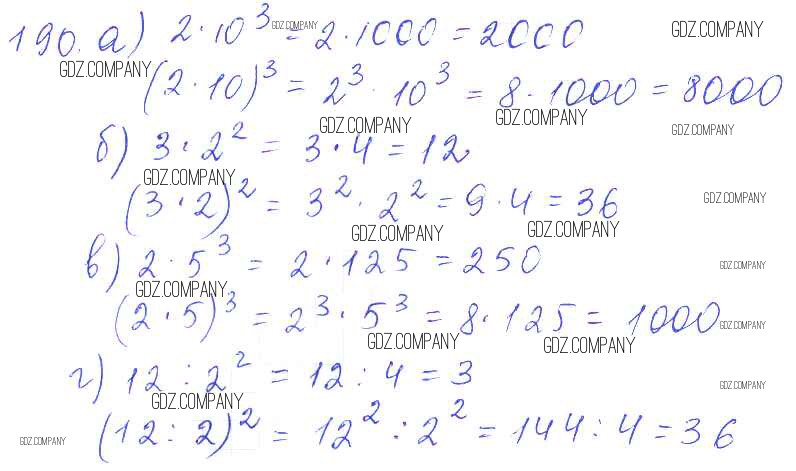 190. а) 2 · 10³ = 2 · 1000 = 2000 GDZ.COMPANY GDZ.COMPANY
GDZ.COMPANY
(2 · 10)³ = 2³ · 10³ = 8 · 1000 = 8000
GDZ.COMPANY GDZ.COMPANY GDZ.COMPANY
б) 3 · 2² = 3 · 4 = 12
GDZ.COMPANY
(3 · 2)² = 3² · 2² = 9 · 4 = 36 GDZ.COMPANY
GDZ.COMPANY GDZ.COMPANY
в) 2 · 5³ = 2 · 125 = 250 GDZ.COMPANY
GDZ.COMPANY
(2 · 5)³ = 2³ · 5³ = 8 · 125 = 1000 GDZ.COMPANY
GDZ.COMPANY GDZ.COMPANY
г) 12 : 2² = 12 : 4 = 3 GDZ.COMPANY
GDZ.COMPANY
(12 : 2)² = 12² : 2² = 144 : 4 = 36
GDZ.COMPANY